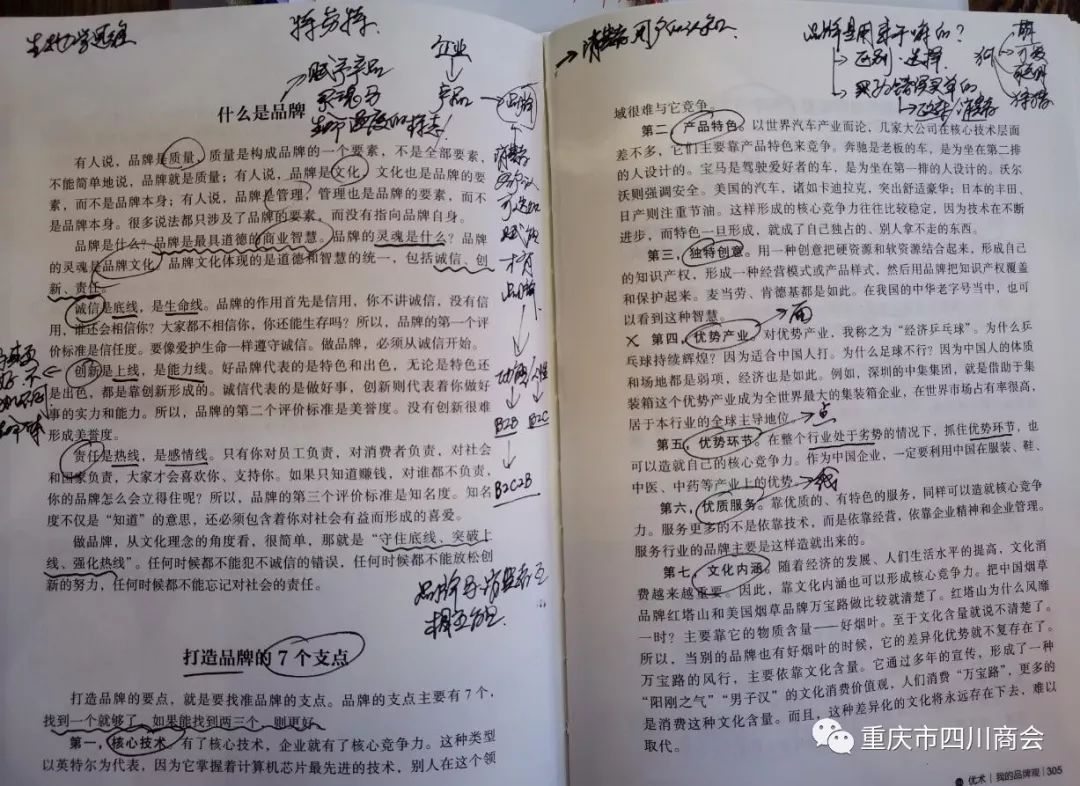 什么是品牌
有人说，品牌是质量，质量是构成品牌的一个要素，不是全部要素，
不能简单地说，品牌就是质量；有人说，品牌是文化，文化也是品牌的要
素，而不是品牌本身；有人说，品牌是管理，管理也是品牌的要素，而不
是品牌本身。很多说法都只涉及了品牌的要素，而没有指向品牌自身。
品牌是什么？品牌是最具道德的商业智慧。品牌的灵魂是什么？品牌
的灵魂是品牌文化，品牌文化体现的是道德和智慧的统一，包括诚信、创
新、责任。
诚信是底线，是生命线。品牌的作用首先是信用，你不讲诚信，没有信
用，谁还会相信你？大家都不相信你，你还能生存吗？所以，品牌的第一个评
价标准是信任度。要像爱护生命一样遵守诚信。做品牌，必须从诚信开始。
创新是上线，是能力线。好品牌代表的是特色和出色，无论是特色还
是出色，都是靠创新形成的。诚信代表的是做好事，创新则代表着你做好
事的实力和能力。所以，品牌的第二个评价标准是美誉度。没有创新很难
形成美誉度。
责任是热线，是感情线。只有你对员工负责，对消费者负责，对社会
和国家负责，大家才会喜欢你、支持你。如果只知道赚钱，对谁都不负责，
你的品牌怎么会立得住呢？所以，品牌的第三个评价标准是知名度。知名
度不仅是“知道”的意思，还必须包含着你对社会有益而形成的喜爱。
做品牌，从文化理念的角度看，很简单，那就是“守住底线、突破上
线、强化热线”。任何时候都不能犯不诚信的错误，任何时候都不能放松创
新的努力，任何时候都不能忘记对社会的责任。
打造品牌的7个支点
打造品牌的要点，就是要找准品牌的支点。品牌的支点主要有7个，
找到一个就够了，如果能找到两三个，则更好。
第一，核心技术。有了核心技术，企业就有了核心竞争力。这种类型
以英特尔为代表，因为它掌握着计算机芯片最先进的技术，别人在这个领
企业
产品
品牌
B2B
B2C
B2C2B
域很难与它竞争。
第二，产品特色。以世界汽车产业而论，几家大公司在核心技术层面
差不多，它们主要靠产品特色来竞争。奔驰是老板的车，是为坐在第二排
的人设计的。宝马是驾驶爱好者的车，是为坐在第一排的人设计的。沃尔
沃则强调安全。美国的汽车，诸如卡迪拉克，突出舒适豪华；日本的丰田、
日产则注重节油。这样形成的核心竞争力往往比较稳定，因为技术在不断
进步，而特色一旦形成，就成了自己独占的、别人拿不走的东西。
第三，独特创意。用一种创意把硬资源和软资源结合起来，形成自己
的知识产权，形成一种经营模式或产品样式，然后用品牌把知识产权覆盖
和保护起来。麦当劳、肯德基都是如此。在我国的中华老字号当中，也可
以看到这种智慧。
面
第四，优势产业。对优势产业，我称之为“经济乒乓球”。为什么乒
乓球持续辉煌？因为适合中国人打。为什么足球不行？因为中国人的体质
和场地都是弱项，经济也是如此。例如，深圳的中集集团，就是借助于集
装箱这个优势产业成为全世界最大的集装箱企业，在世界市场占有率很高，
居于本行业的全球主导地位。
点
第五，优势环节。在整个行业处于劣势的情况下，抓住优势环节，也
可以造就自己的核心竞争力。作为中国企业，一定要利用中国在服装、鞋、
中医、中药等产业上的优势。
第六，优质服务。靠优质的、有特色的服务，同样可以造就核心竞争
力。服务更多的不是依靠技术，而是依靠经营，依靠企业精神和企业管理。
服务行业的品牌主要是这样造就出来的。
第七，文化内涵。随着经济的发展、人们生活水平的提高，文化消
费越来越重要。因此，靠文化内涵也可以形成核心竞争力。把中国烟草
品牌红塔山和美国烟草品牌万宝路做比较就清楚了。红塔山为什么风靡
一时？主要靠它的物质含量——好烟叶。至于文化含量就说不清楚了。
所以，当别的品牌也有好烟叶的时候，它的差异化优势就不复存在了。
万宝路的风行，主要依靠文化含量。它通过多年的宣传，形成了一种
“阳刚之气”“男子汉”的文化消费价值观，人们消费“万宝路”，更多的
是消费这种文化含量。而且，这种差异化的文化将永远存在下去，难以
取代。
重庆市四川商会
优术｜我的品牌观｜305